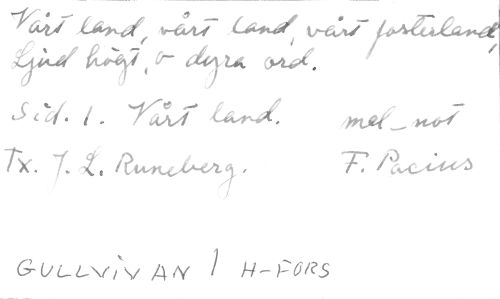 Vårt land, vårt land, vårt fosterland,
Ljud högt, o dyra ord.
Sid. 1. Vårt land. mel-not
Tx. J. L. Runeberg. F. Pacius
GULLVIVAN 1 H-FORS